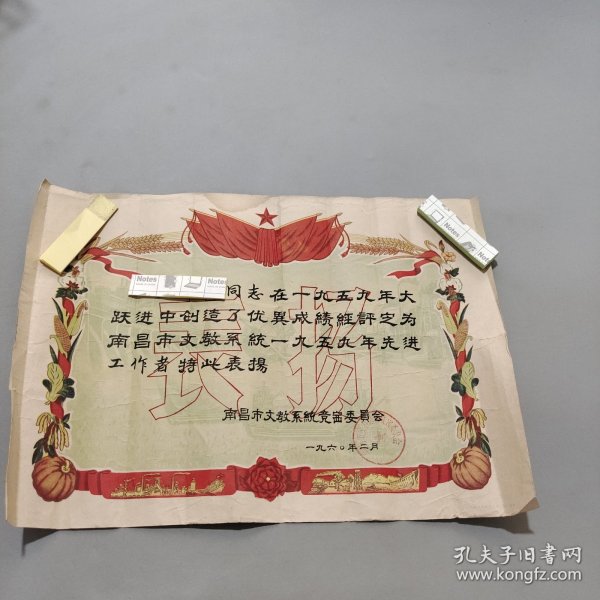 Notes
Notes
Notes
Notes
同志在一九五九年大
跃进中创造了优異成績経評定为
南昌市文教系統一九五九年先進
工作者特此表揚
表揚
南昌市文教系統竞赛委員会
一九六〇年二月
孔夫子旧書网
www.kongfz.com